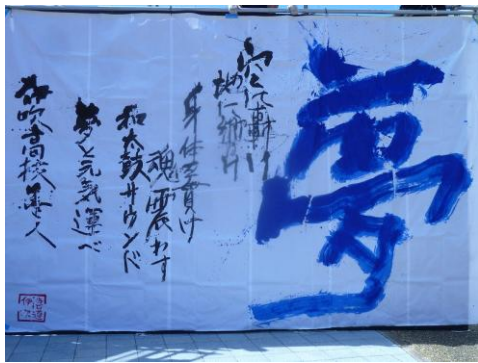 夢
空に轟け
地に響け
身体を貫け
魂震わす
和太鼓サウンド
夢と元気運べ
吹高校